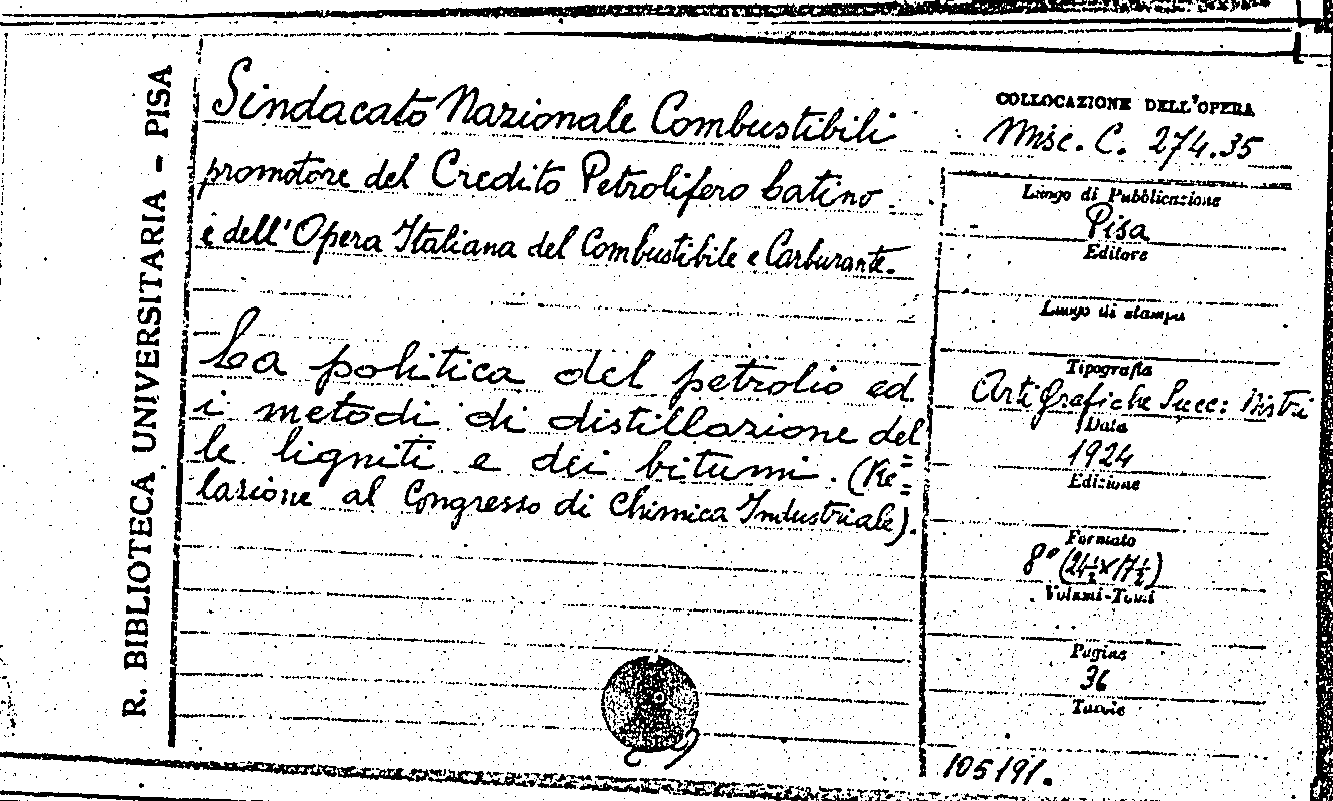 R. BIBLIOTECA UNIVERSITARIA - PISA
Sindacato Nazionale Combustibili
promotore del Credito Petrolifero Latino
e dell'Opera Italiana del Combustibile e Carburante.
La politica del petrolio ed
i metodi di distillazione del=
le ligniti e dei bitumi. (Re=
lazione al Congresso di Chimica Industriale).
COLLOCAZIONE DELL'OPERA
Misc. C. 274.35
Luogo di Pubblicazione
Pisa
Editore
Luogo di stampa
Tipografia
Arti Grafiche Succ: Nistri
Data
1924
Edizione
Formato
8° (24½×17½)
Volumi-Tomi
Pagine
36
Tavole
105191.